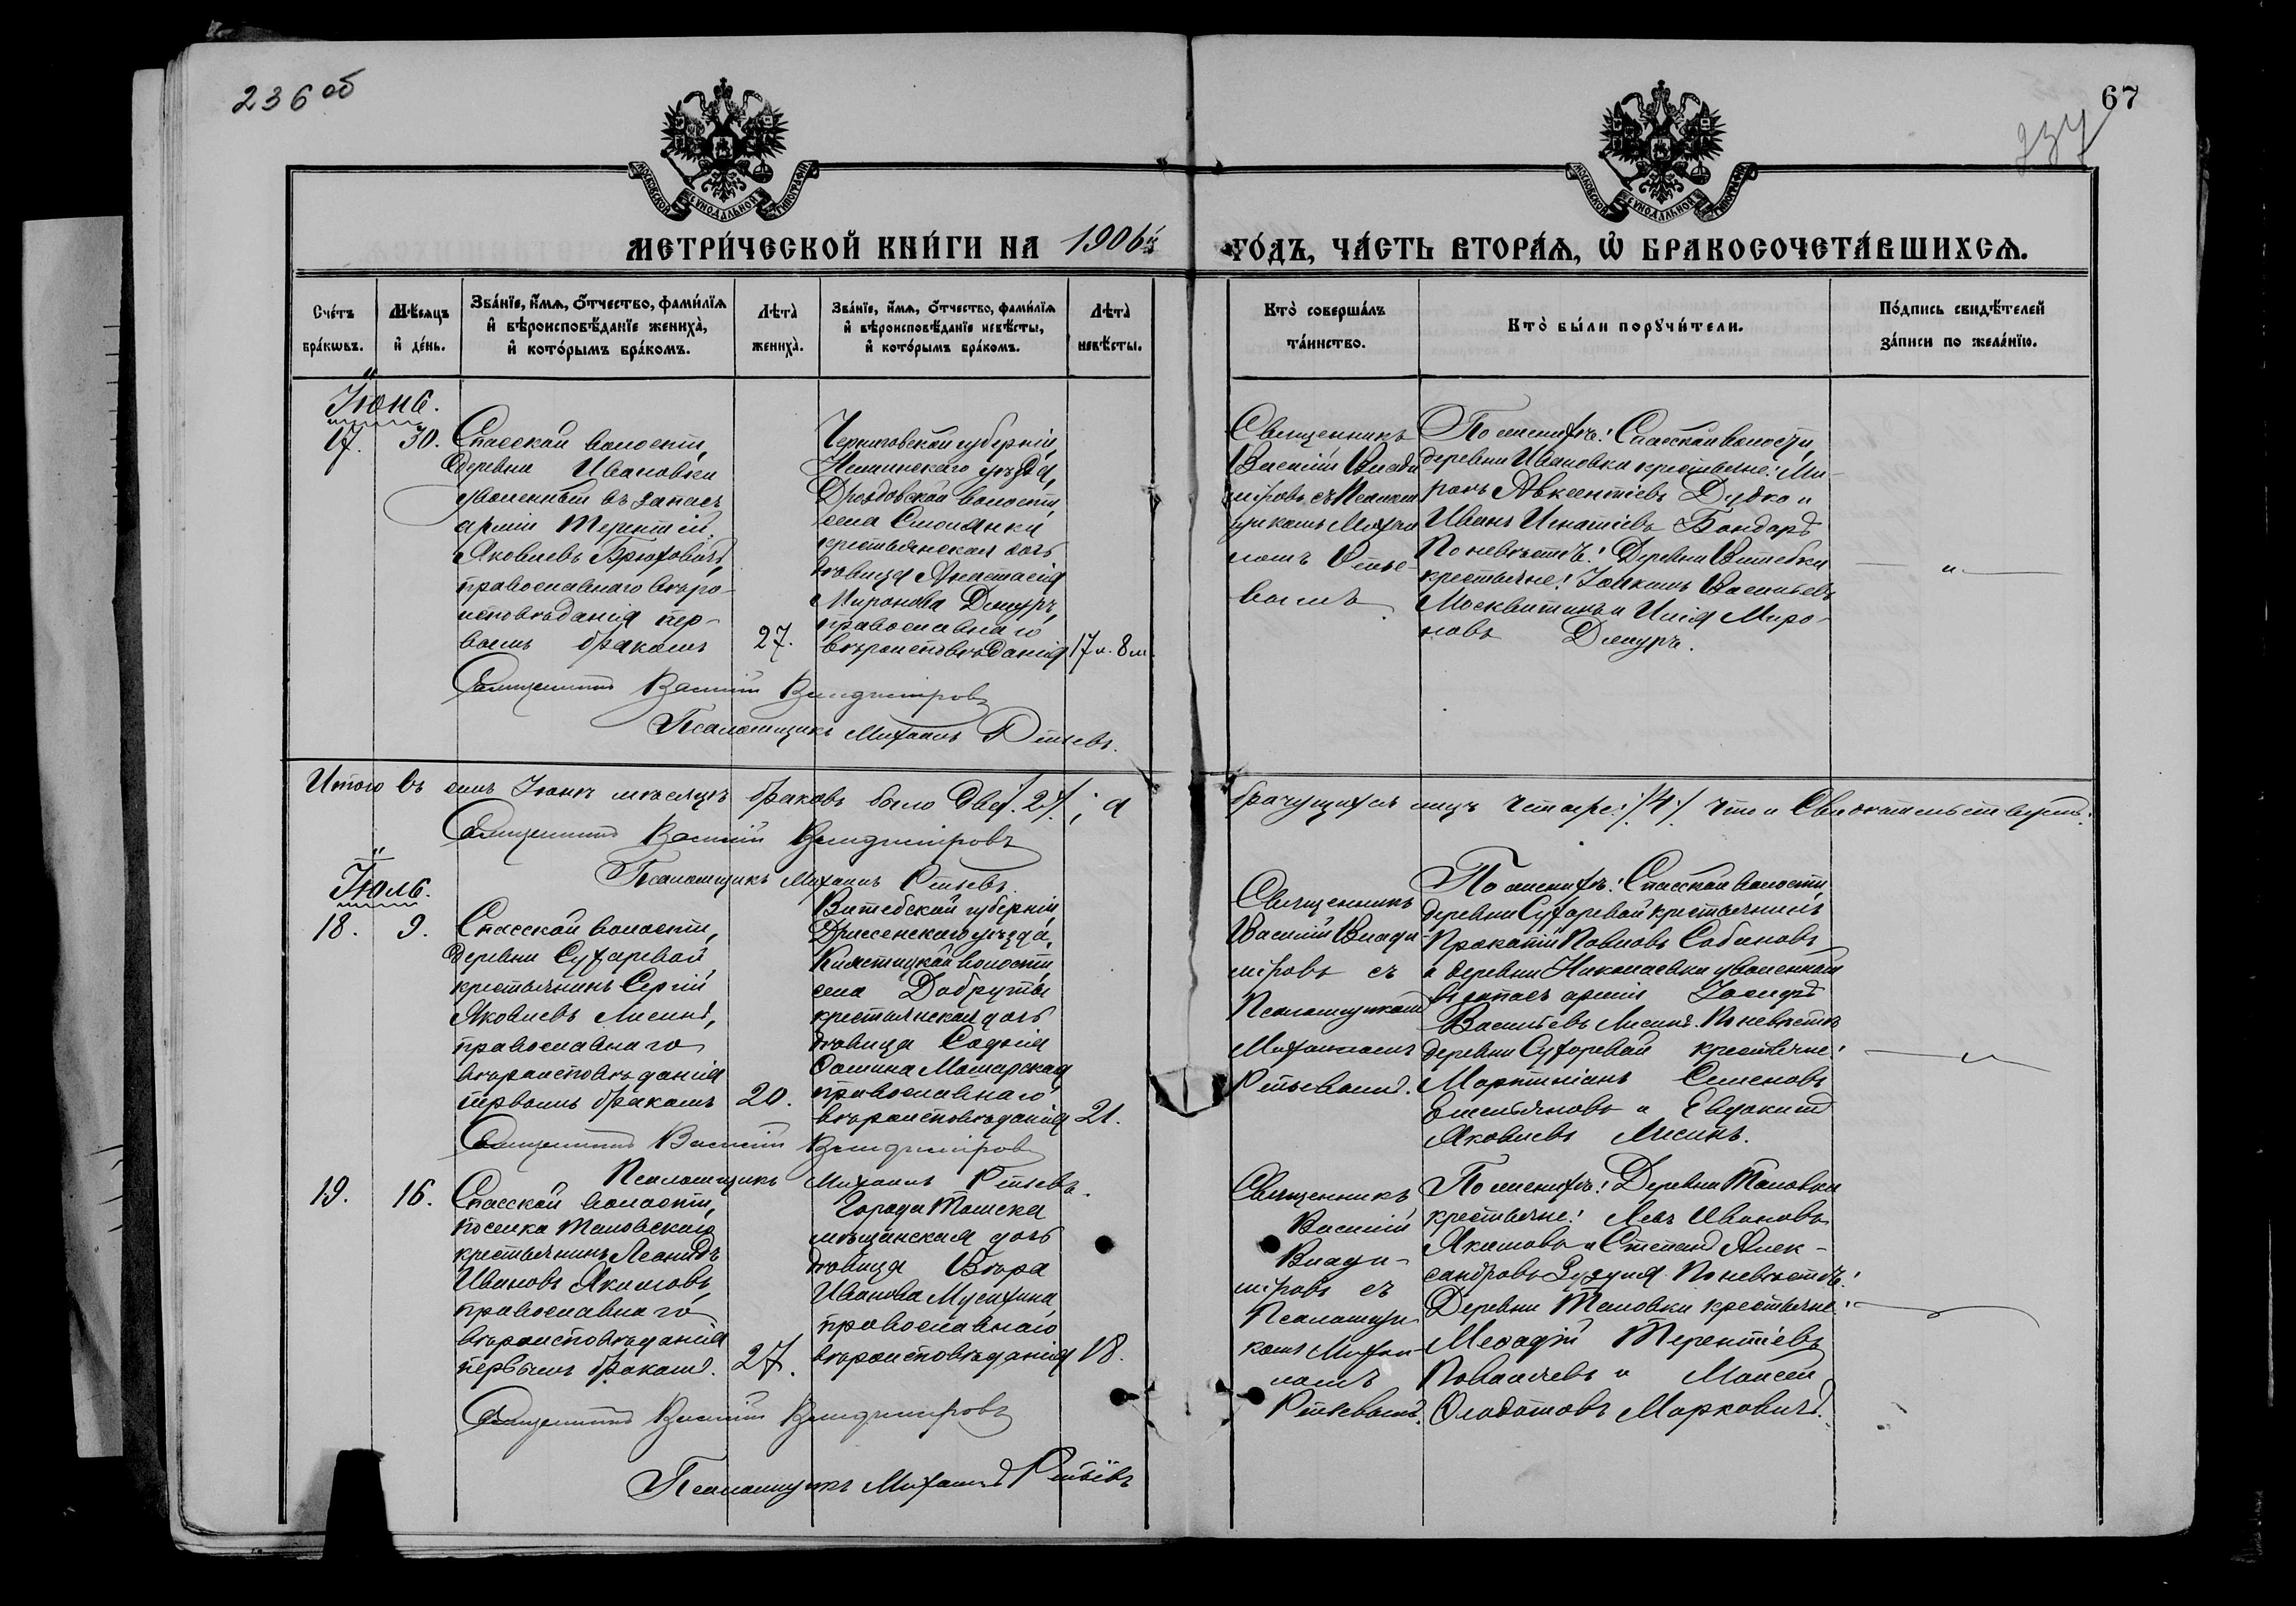 236 об
67
237
МОСКОВСКОЙ СѴНОДАЛЬНОЙ ТИПОГРАФІИ
МОСКОВСКОЙ СѴНОДАЛЬНОЙ ТИПОГРАФІИ
МЕТРИ́ЧЕСКОЙ КНИ́ГИ НА 1906й ГО́ДЪ, ЧА́СТЬ ВТОРА́Ѧ, Ѽ БРАКОСОЧЕТА́ВШИХСѦ.
Сче́тъ бра́кѡвъ.
Мѣ́сяцъ и҆ де́нь.
Зва́нїе, и҆́мѧ, ѻ҆́тчество, фами́лїѧ и҆ вѣроисповѣ́данїе жениха̀, и҆ кото́рымъ бра́комъ.
Лѣта̀ жениха̀.
Зва́нїе, и҆́мѧ, ѻ҆́тчество, фами́лїѧ и҆ вѣроисповѣ́данїе невѣ́сты, и҆ кото́рымъ бра́комъ.
Лѣта̀ невѣ́сты.
Кто̀ соверша́лъ та́инство.
Кто̀ бы́ли порꙋчи́тели.
По́дпись свидѣ́телей за́писи по жела́нїю.
Іюнь.
17.
30.
Спасской волости,
деревни Ивановки
уволенный въ запасъ
арміи Терентій
Яковлевъ Брюховичъ,
православнаго вѣро-
исповѣданія пер-
вымъ бракомъ
27.
Черниговской губерніи,
Нѣжинскаго уѣзда,
Дроздовской волости,
села Смолянки
крестьянская дочь
дѣвица Анастасія
Миронова Демуръ,
православнаго
вѣроисповѣданія
17 л. 8 м.
Священникъ
Василій Влади
міровъ съ Псалом
щикомъ Михаи
ломъ Ртые-
вымъ.
По женихѣ: Спасской волости,
деревни Ивановки крестьяне: Ми-
ронъ Авксентіевъ Дудко и
Иванъ Игнатіевъ Бондарь
По невѣстѣ: Деревни Витебки
крестьяне: Іоакимъ Васильевъ
Москвитинъ и Илія Миро-
новъ Демуръ.
Священникъ Василій Владиміровъ
Псаломщикъ Михаилъ
Итого въ семъ Іюнѣ мѣсяцѣ браковъ было два /:2:/; а
брачущихся лицъ четыре: /:4:/ Что и свидѣтельствуемъ:
Священникъ Василій Владиміровъ
Псаломщикъ Михаилъ
Іюль.
18.
9.
Спасской волости,
деревни Сухаревой,
крестьянинъ Сергій
Яковлевъ Лисинъ,
православнаго
вѣроисповѣданія
первымъ бракомъ
20.
Витебской губерніи,
Дриссенскаго уѣзда,
волости
села
крестьянская дочь
дѣвица Софія
Фомина
православнаго
вѣроисповѣданія
21.
Священникъ
Василій Влади-
міровъ съ
Псаломщикомъ
Михаиломъ
По женихѣ: Спасской волости,
деревни Сухаревой крестьянинъ
Прокопій Павловъ Собановъ
и деревни Николаевки уволенный
въ запасъ арміи Іосифъ
Васильевъ Лисинъ. По невѣстѣ
деревни Сухоревой крестьяне:
Мартиніанъ Семеновъ
Емельяновъ и Евдокимъ
Яковлевъ Лисинъ.
Священникъ Василій Владиміровъ
Псаломщикъ Михаилъ
19.
16.
Спасской волости,
поселка Таловскаго
крестьянинъ Леонидъ
Ивановъ Якимовъ,
православнаго
вѣроисповѣданія
первымъ бракомъ.
27.
Города Томска
мѣщанская дочь
дѣвица Вѣра
Иванова Мусихина,
православнаго
вѣроисповѣданія
18.
Священникъ
Василій
Влади-
міровъ съ
Псаломщи-
комъ Михаи-
ломъ
По женихѣ: Деревни Таловки
крестьяне: Левъ Ивановъ
Якимовъ и Степанъ Алек-
сандровъ По невѣстѣ:
Деревни Таловки крестьяне:
Меѳодій Терентіевъ
и Моисей
Марковичъ.
Священникъ Василій Владиміровъ
Псаломщикъ Михаилъ